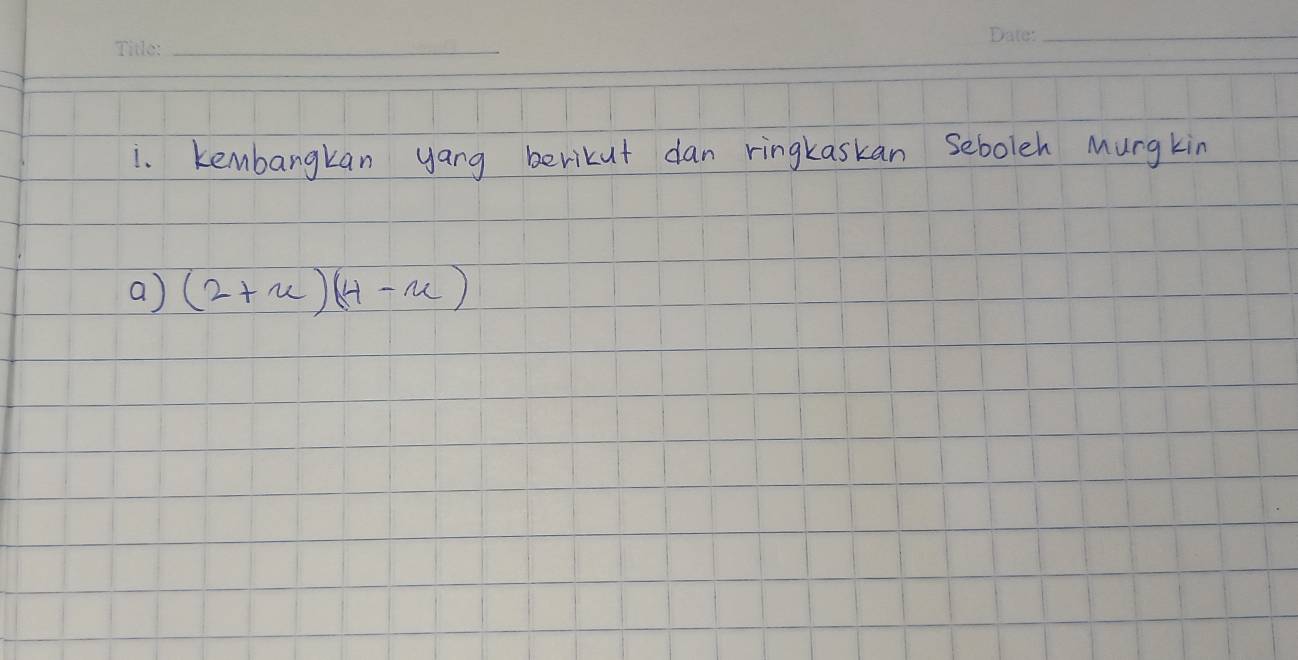 Title:
Date:
i. kembangkan yang berikut dan ringkaskan Seboleh Mungkin
a) (2+x)(4-x)